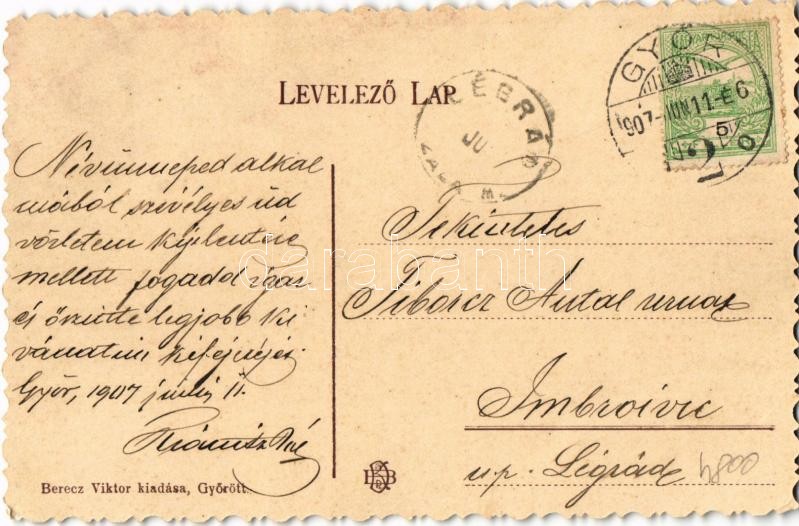 LEVELEZŐ LAP
GYŐR
907 JUN 11-É6
LÉGRÁD
JU
ZALA M
5
Névünneped alkal
mából szívélyes üd
vözletem kijelentése
mellett fogadd igaz
és őszinte legjobb ki
vánataim kifejezését
Győr, 1907 juni 11.
Tekintetes
Tiborcz Antal urnak
Imbroivic
u.p. Légrád
4800
Berecz Viktor kiadása, Győrött.
darabanth